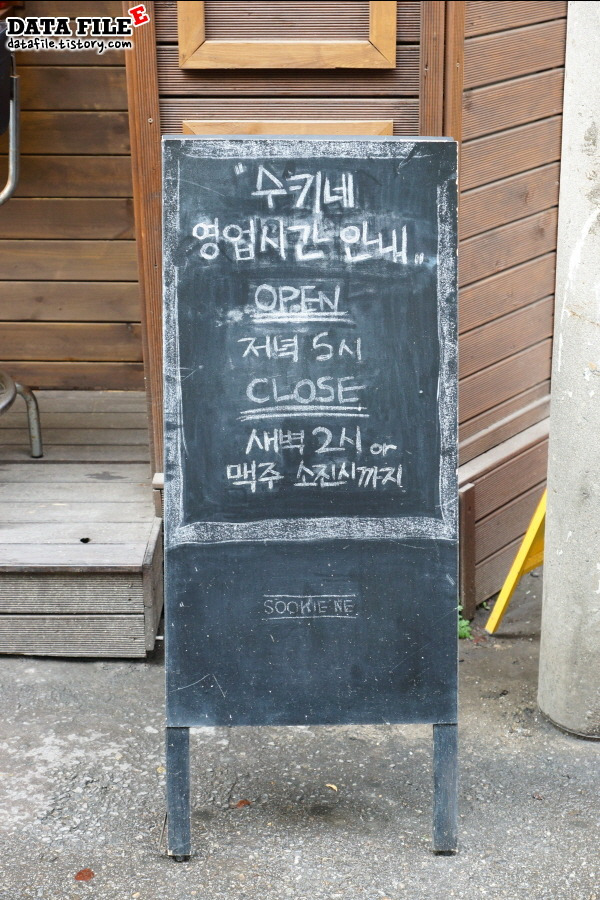 DATA FILE E
datafile.tistory.com
"수키네
영업시간 안내"
OPEN
저녁 5시
CLOSE
새벽 2시 or
맥주 소진시까지
SOOKIE NE